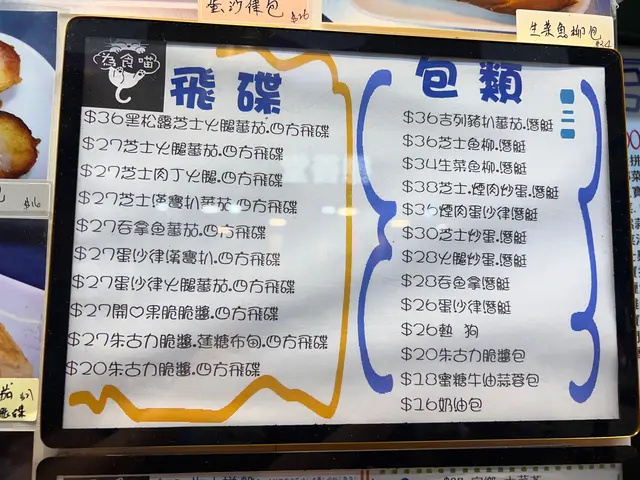 蛋沙律包
$26
生菜魚柳包
為食喵
飛碟
$36黑松露芝士火腿蕃茄.四方飛碟
$27芝士火腿蕃茄.四方飛碟
$27芝士肉丁火腿.四方飛碟
$27芝士漢寶扒蕃茄.四方飛碟
$27吞拿魚蕃茄.四方飛碟
$27蛋沙律漢寶扒.四方飛碟
$27蛋沙律火腿蕃茄.四方飛碟
$27開♡果脆脆醬.四方飛碟
$27朱古力脆醬.蓮糖布甸.四方飛碟
$20朱古力脆醬.四方飛碟
包類
$36吉列豬扒蕃茄.潛艇
$36芝士魚柳.潛艇
$34生菜魚柳.潛艇
$38芝士.煙肉炒蛋.潛艇
$36煙肉蛋沙律潛艇
$30芝士炒蛋.潛艇
$28火腿炒蛋.潛艇
$28吞魚拿.潛艇
$26蛋沙律潛艇
$26熱 狗
$20朱古力脆醬包
$18蜜糖牛油蒜蓉包
$16奶油包
$16